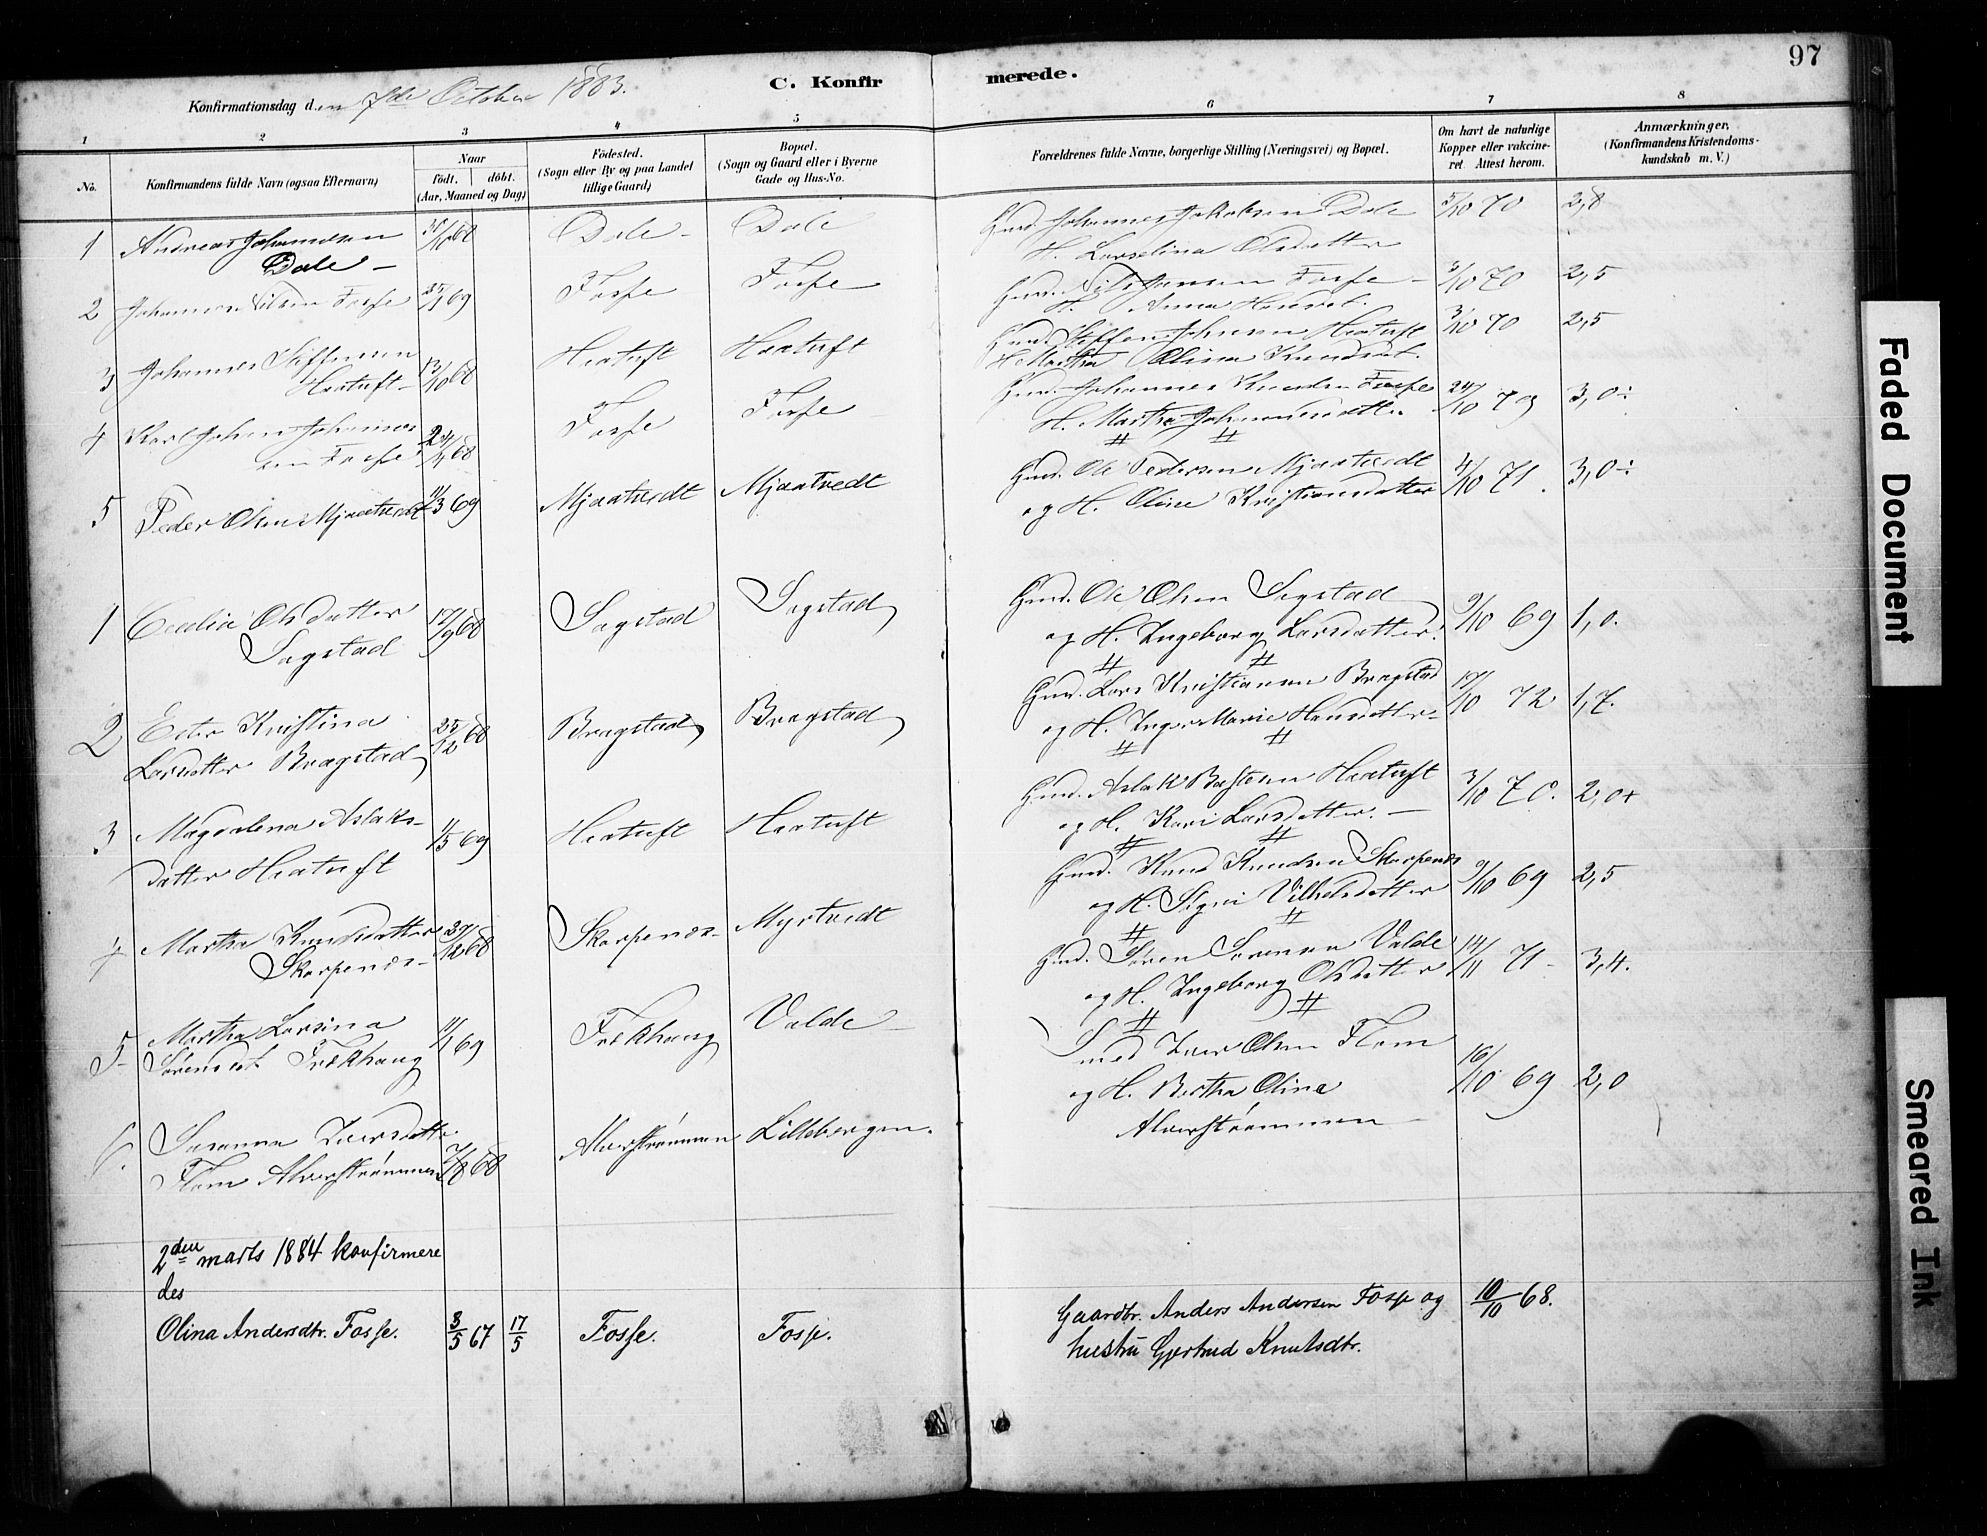 97
C. Konfirmerede.
Konfirmationsdag den 7de October 1883.
1 2 3 4 5 6 7 8
No.
Konfirmandens fulde Navn (ogsaa Efternavn)
Naar
født. døbt.
(Aar, Maaned og Dag)
Födested.
(Sogn eller By og paa Landet
tillige Gaard)
Bopæl.
(Sogn og Gaard eller i Byerne
Gade og Hus-No.
Forældrenes fulde Navne, borgerlige Stilling (Næringsvei) og Bopæl.
Om havt de naturlige
Kopper eller vakcine-
ret. Attest herom.
Anmærkninger,
(Konfirmandens Kristendoms-
kundskab m. V.)
1 Andreas Johannesen Dale Dale Gmd. Johannes Jakobsen Dale 5/10 70 2,8
Dale - H. Larselina Olsdatter
2 Johannes Nilsen Fosse Fosse Fosse Gmd. Nils Hansen Fosse - 3/10 70 2,5
H. Anna Hansdt.
3 Johannes Steffensen 13/10 68 Hiatuft Hiatuft Gmd. Steffen Johnsen Hiatuft 3/10 70 2,5
Hiatuft - H. Martha Olina Knudsdt.
4 Karl Johan Johannes Fosse Fosse Gmd. Johannes Knudsen Fosse 24/10 79 3,0÷
sen Fosse H. Martha Johannesdatter
5 Peder Olsen Mjaatvedt 11/3 69 Mjaatvedt Mjaatvedt Gmd. Ole Pedersen Mjaatvedt 4/10 71. 3,0÷
og H. Oline Kristiansdatter
1 Cecilia Olsdatter 12/9 68 Sagstad Sagstad Gmd. Ole Olsen Sagstad 9/10 69 1,0.
Sagstad og H. Ingeborg Larsdatter.
2 Ester Kristina 25/12 68 Bragstad Bragstad Gmd. Lars Kristiansen Bragstad 17/10 72 1,7.
Larsdatter Bragstad og H. Inger Marie Hansdatter
3 Magdalena Aslaks- 1/5 69 Hiatuft Hiatuft Gmd. Aslak Hiatuft 3/10 70. 2,0+
datter Hiatuft og H. Kari Larsdatter. -
4 Martha Knudsdatter Skarpenæs- Myrtvedt Gmd. Knud Knudsen Skarpenæs 9/10 69 2,5
Skarpenæs- og H. Signi Vilhelsdatter
5 Martha Larsina 11/1 69 Frekhaug Valde Gmd. Søren Sørensen Valde 14/11 71- 3,4.
Sørensdt Frekhaug og H. Ingeborg Olsdatter
6. Susanna Iversdatter 7/8 68 Alverstrømmen Lillebergen. Smed Iver Olsen Flom 16/10 69 2,0
Flom Alverstrømmen og H. Bertha Olina
Alverstrømmen -
2den marts 1884 konfirmere
des
Olina Andersdtr. Fosse. 3/5 67 17/5 Fosse. Fosse. Gaardbr. Anders Andersen Fosse og 10/10 68.
hustru Gjertrud Knutsdtr.
Faded Document
Smeared Ink